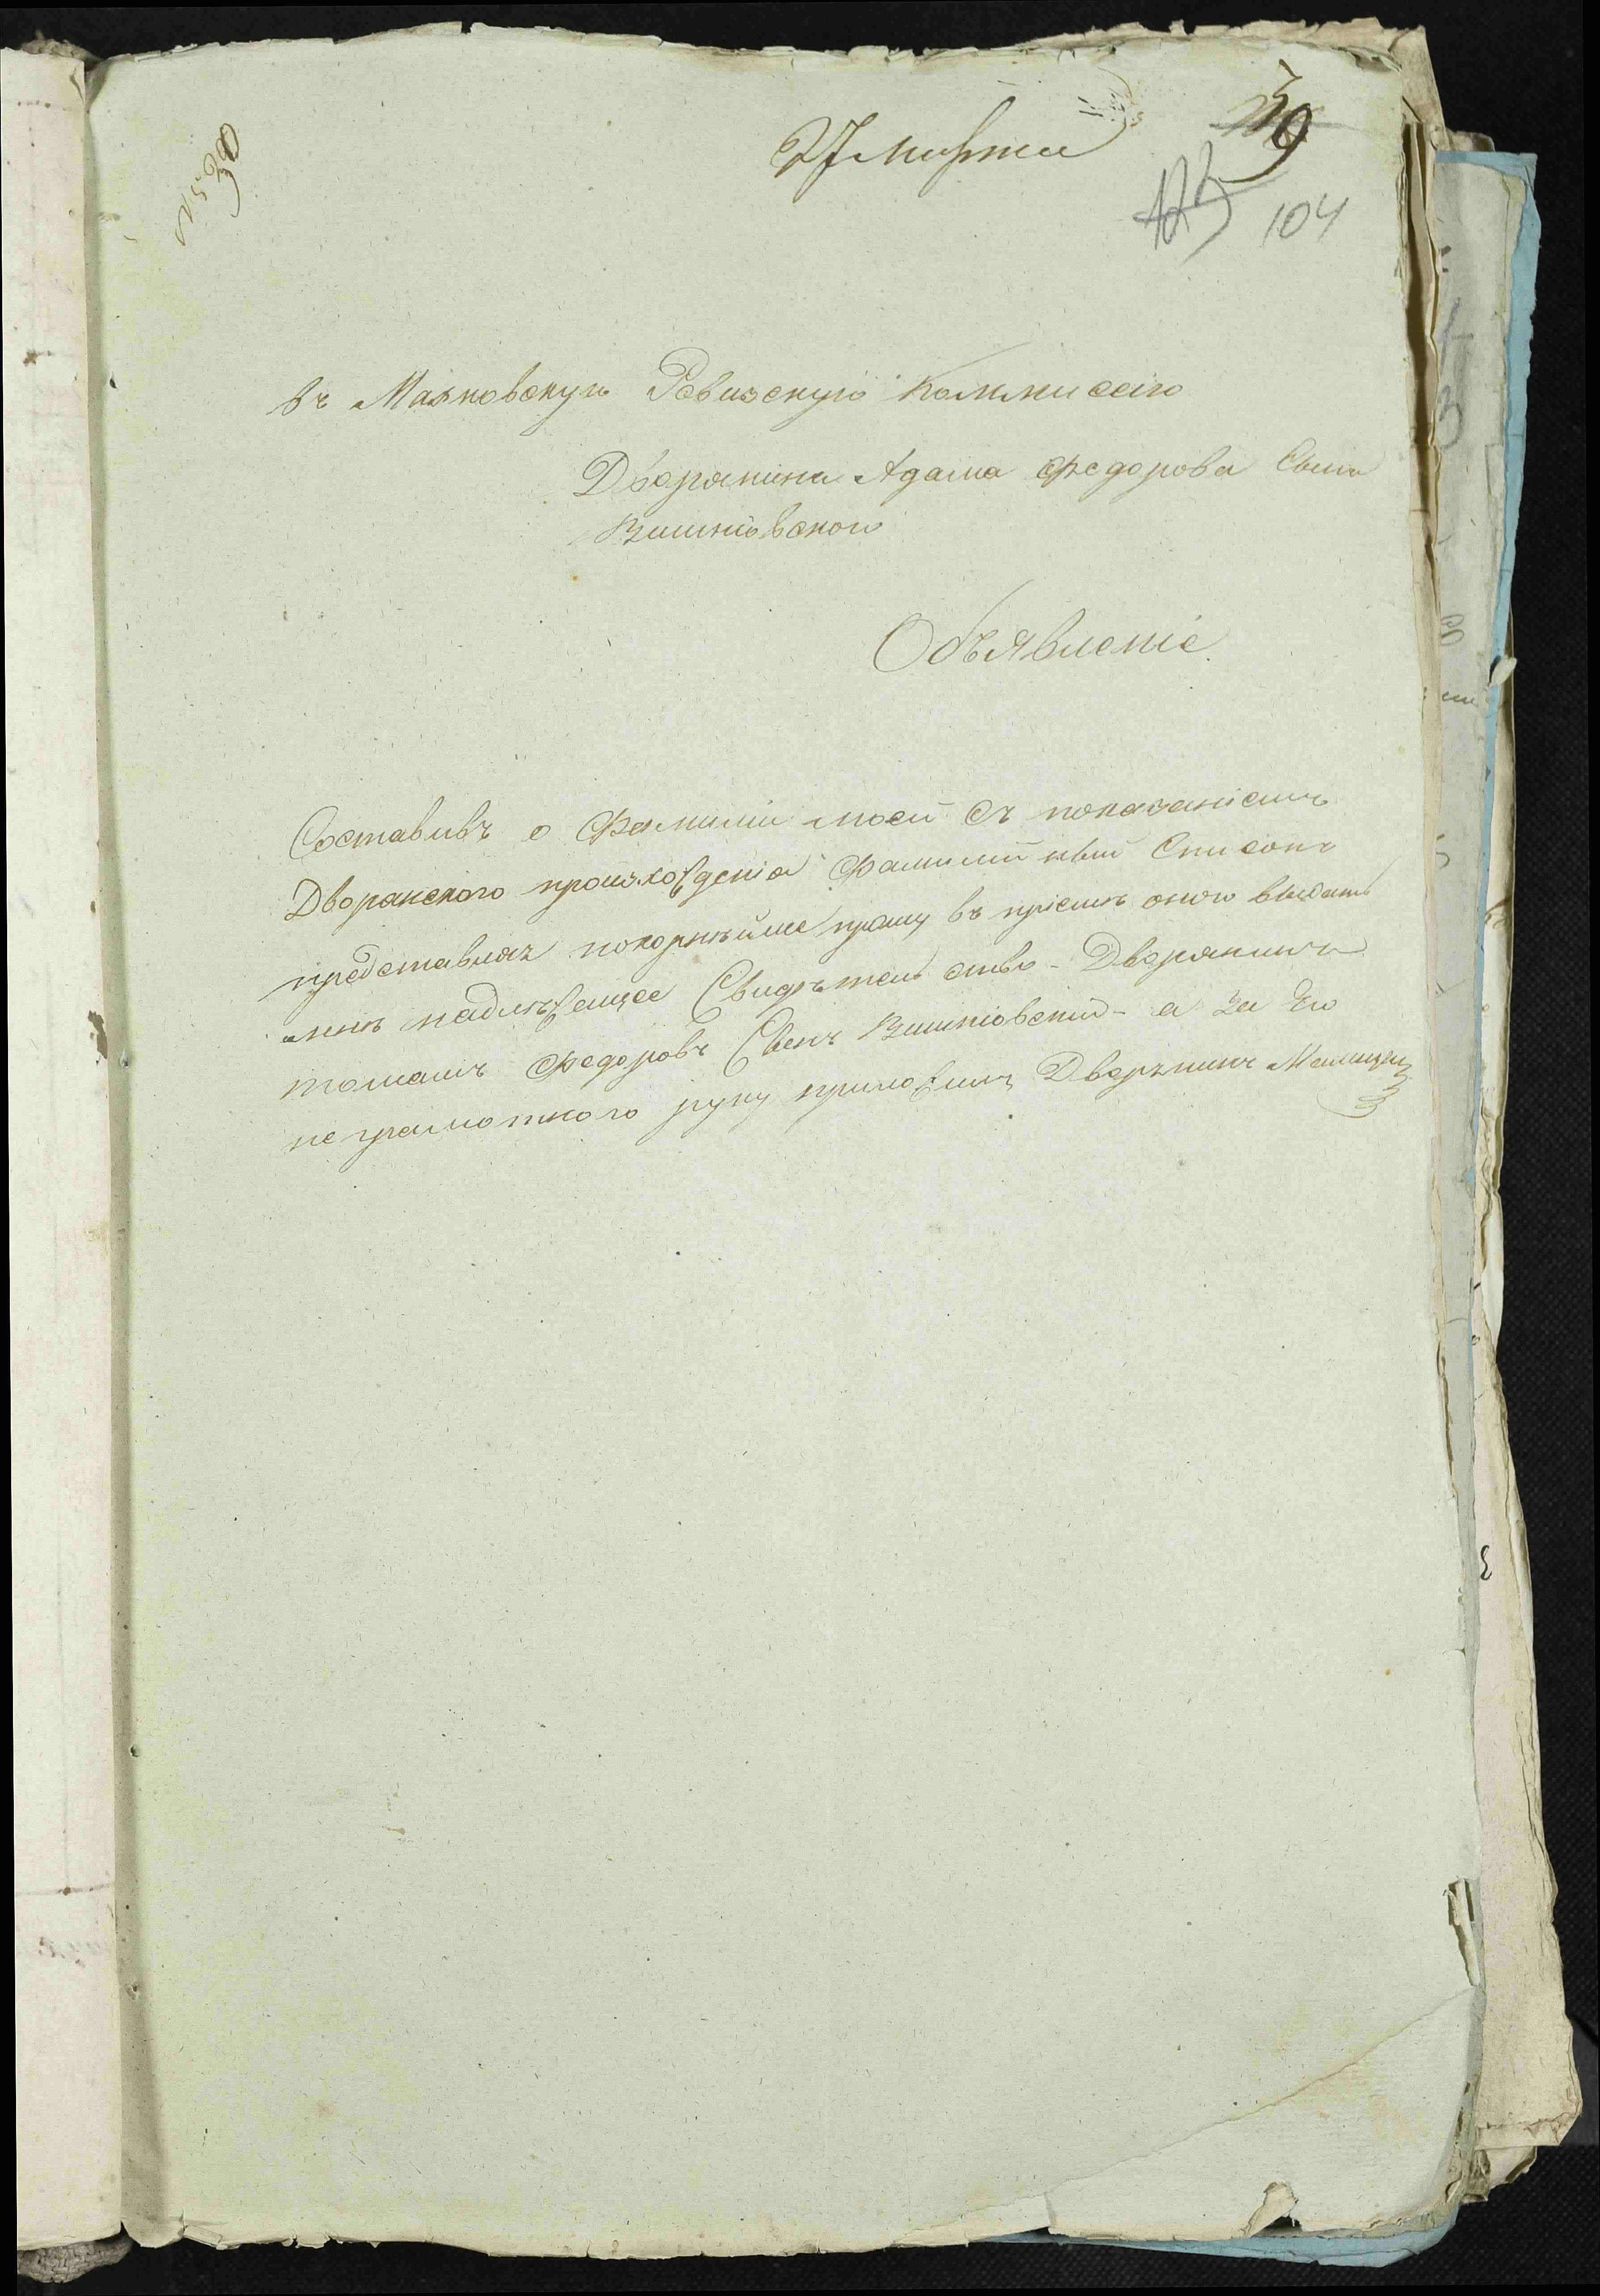 27 марта
59
123 104
въ Махновскую Ревизскую Коммиссію
Дворянина Адама Федорова Сына
Вишніовского
Объявленіе
Составивъ о Фамиліи моей съ показаніемъ
Дворянского происхожденія Фамилийный Списокъ
представляя покорнѣйше прошу въ пріемѣ оного выдать
мнѣ надлѣжащее Свидѣтельство - Дворянинъ
Федоровъ Сынъ Вишніовский - а за Его
неграмотного руку приложилъ Дворѣнинъ